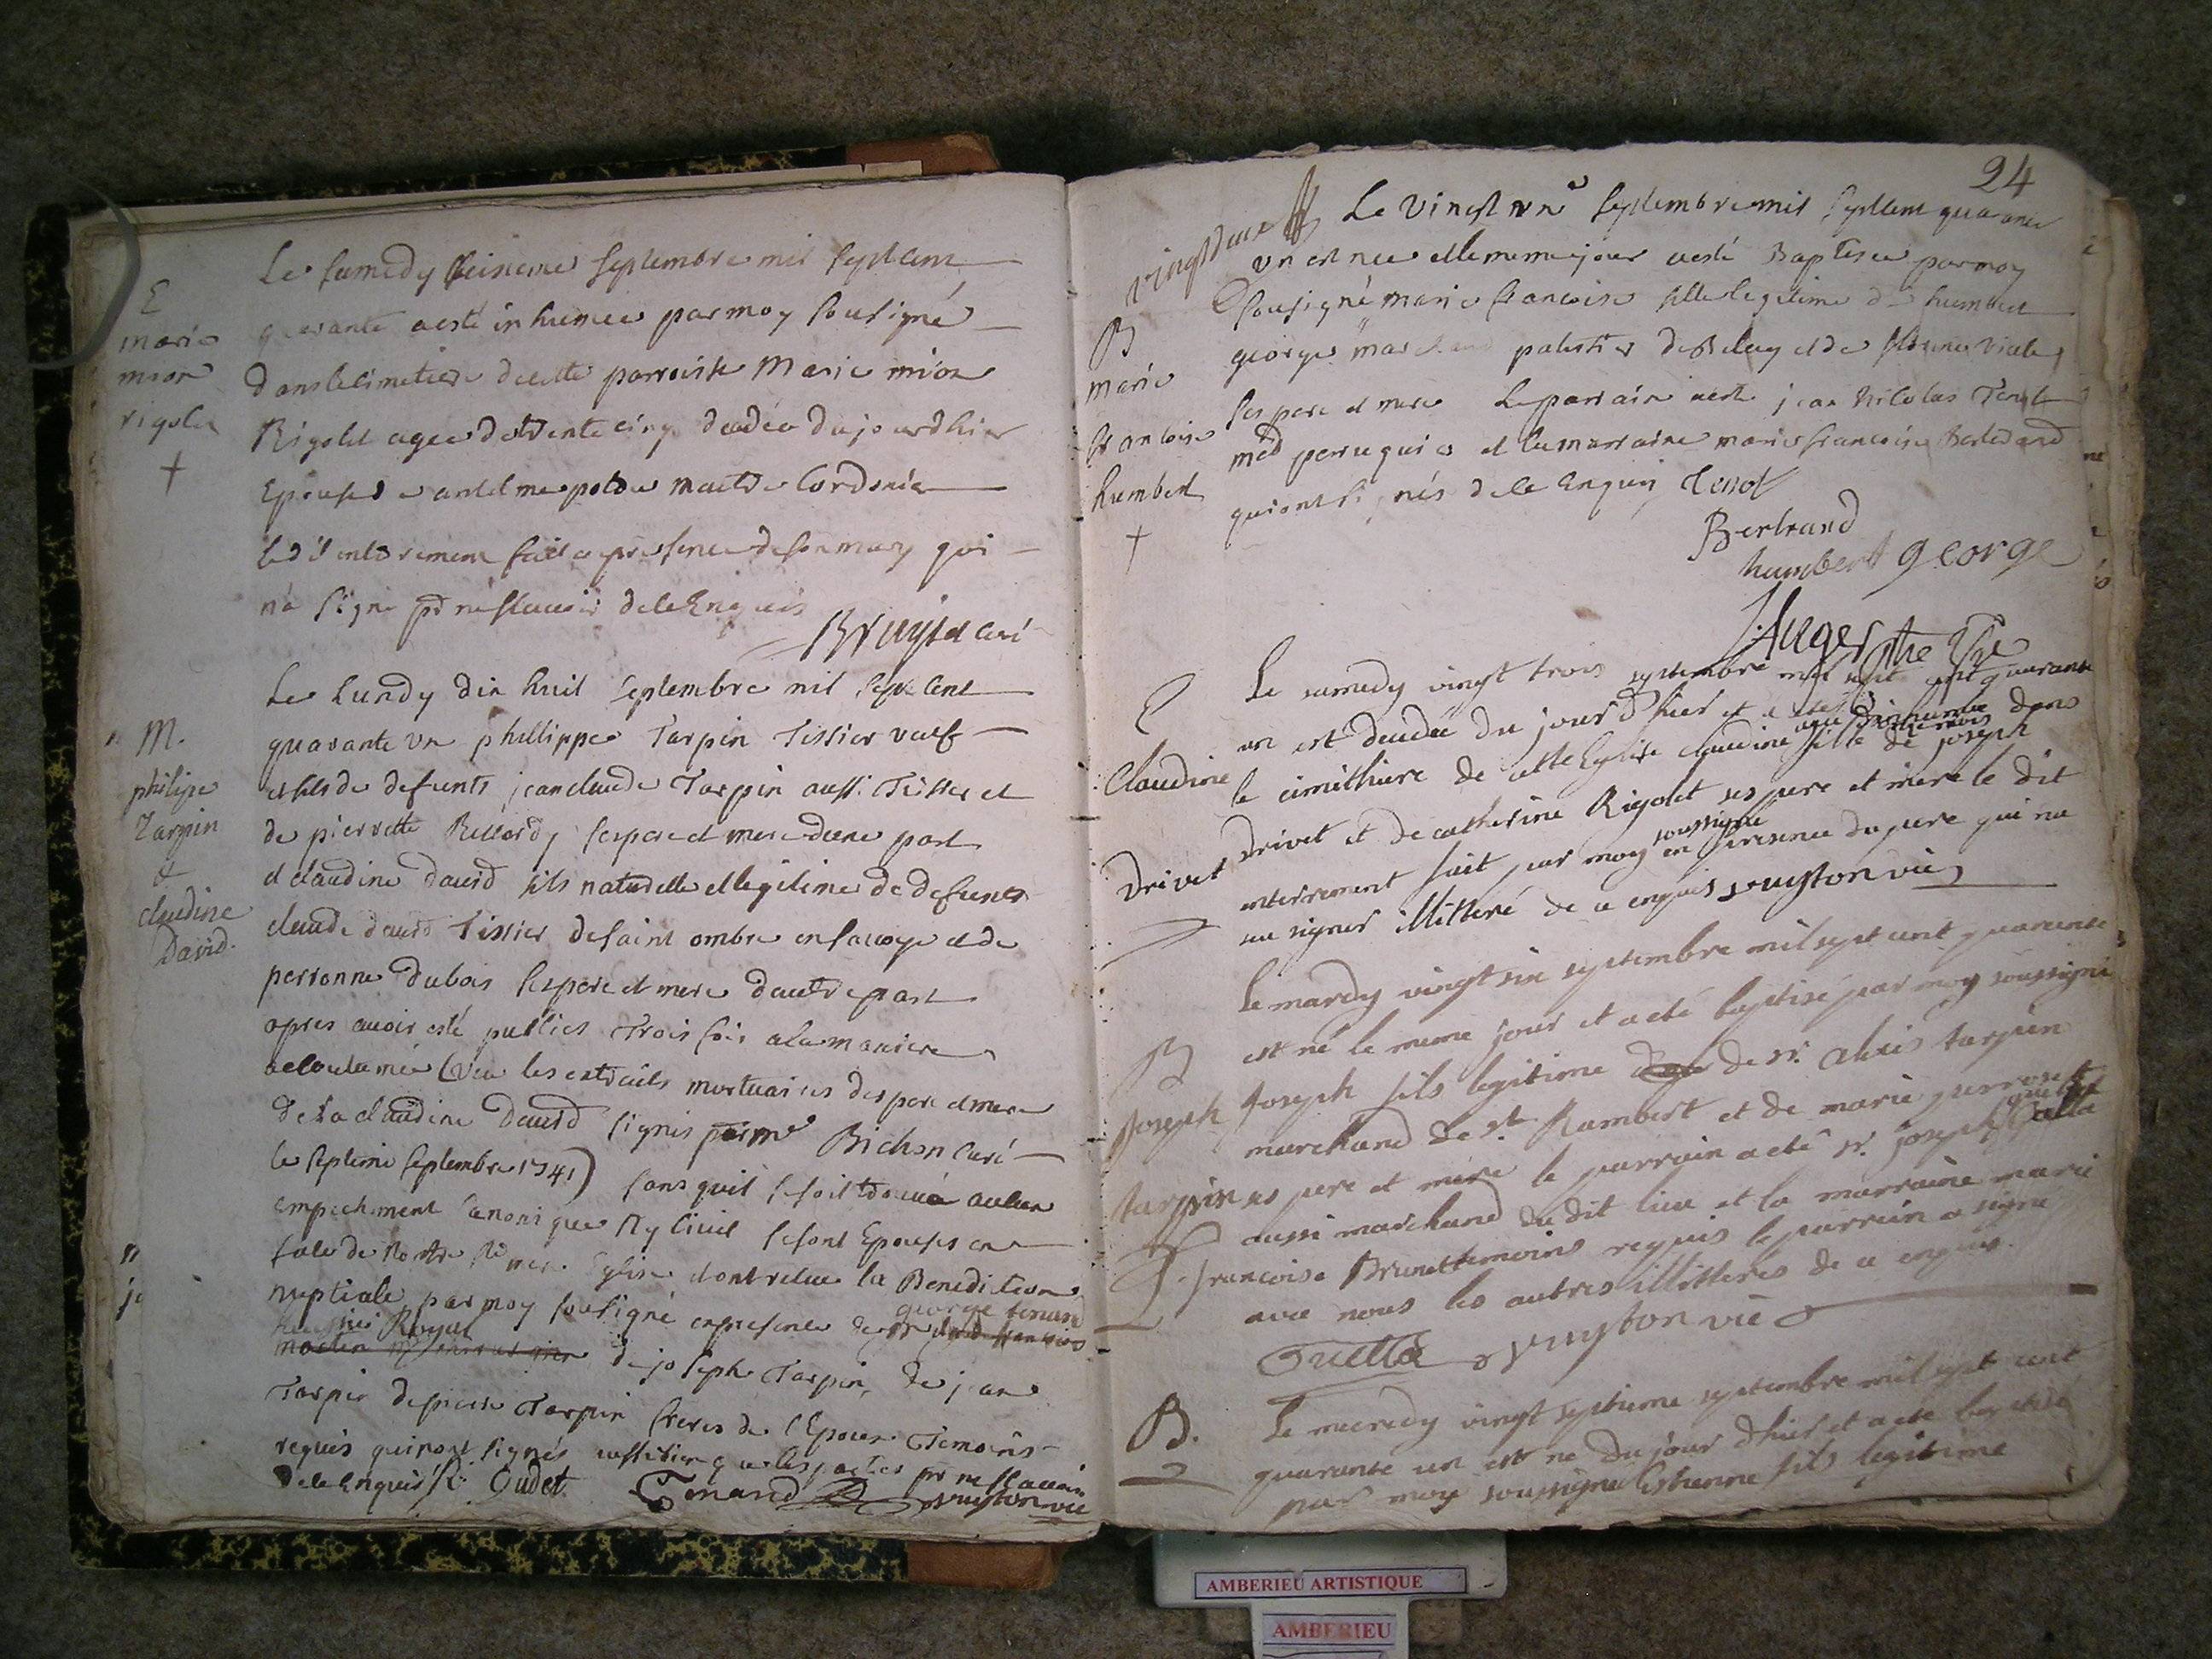 E
marie
mion
rigolet
Le samedy seisieme septembre mil sept cent
quarante a esté inhumée par moy sousigné
dans le cimetiere de cette parroisse Marie mion
Rigolet agee de trente cinq decedée du jourdhier
Epouse antelme maitre Cordonier
led enterement fait en presence de son mary qui
na signé pr ne scavoir de ce Enquis
curé
M.
philipe
Tarpin
&
claudine
David.
Le Lundy dix huit septembre mil sept cent
quarante un phillippe Tarpin Tissier veuf
et fils de defunts jean claude Tarpin aussi Tissier et
de pierrette ses pere et mere dune part
et claudine david fils naturelle et legitime de defunts
claude david tissier de saint ombre en savoye et de
perronne dubois ses pere et mere dautre part
apres avoir esté publies Trois fois a la maniere
accoutumée (veu les extraits mortuaires des pere et mere
de la claudine David signés par mr Bichon curé
le septieme septembre 1741) sans quil se soit trouvé aucun
empechement canonique ny civil se sont Epousés en
face de Notre Ste mere Eglise et ont relue la Benediction
nuptiale par moy sousigné en presence de sr george tenand
huissier Royal
de joseph Tarpin, de jean
Tarpin de pierre Tarpin freres de l'Epoux Temoins
requis qui nont signés aussi bien que les parties pr ne scavoir
de ce Enquis Oudet Tenand vic
24
vingt deux
B
marie
francoise
humbert
Le vingt une septembre mil sept cent quarante
un est nee et le meme jour a esté Baptisee par moy
sousigné marie francoise fille legitime de humbert
george marchand de Beley et de
ses pere et mere Le parrain a esté jean Nicolas Tenot
md perruquier et la marraine marie francoise Bertrand
qui ont signés de ce Enquis Tenot
Bertrand
humbert george
J. Auger
E
Claudine
Drivet
Le samedy vingt trois septembre mil sept cent quarante
un est decedée du jour d'hier et a eté inhumée dans
le cimithiere de cette Eglise claudine agée mois fille de joseph
Drivet et de catherine Rigolet ses pere et mere le dit
interrement fait par moy soussigné en presence du pere qui na
su signer illitteré de ce enquis vic
B
Joseph
tarpin
Le mardy vingt six septembre mil sept cent quarante
est né le meme jour et a eté baptisé par moy soussigné
Joseph fils legitime de sr. Alexis tarpin
marchand de st Rambert et de marie perrozet
ses pere et mere le parrain a eté sr. joseph
aussi marchand du dit lieu et la marraine marie
francoise Brunet temoins requis le parrain a signé
avec nous les autres illitterés de ce enquis.
vic
B.
Le mecredy vingt septieme septembre mil sept cent
quarante un est né du jour d'hier et a eté baptisé
par moy soussigné Estienne fils legitime
AMBERIEU ARTISTIQUE
AMBERIEU